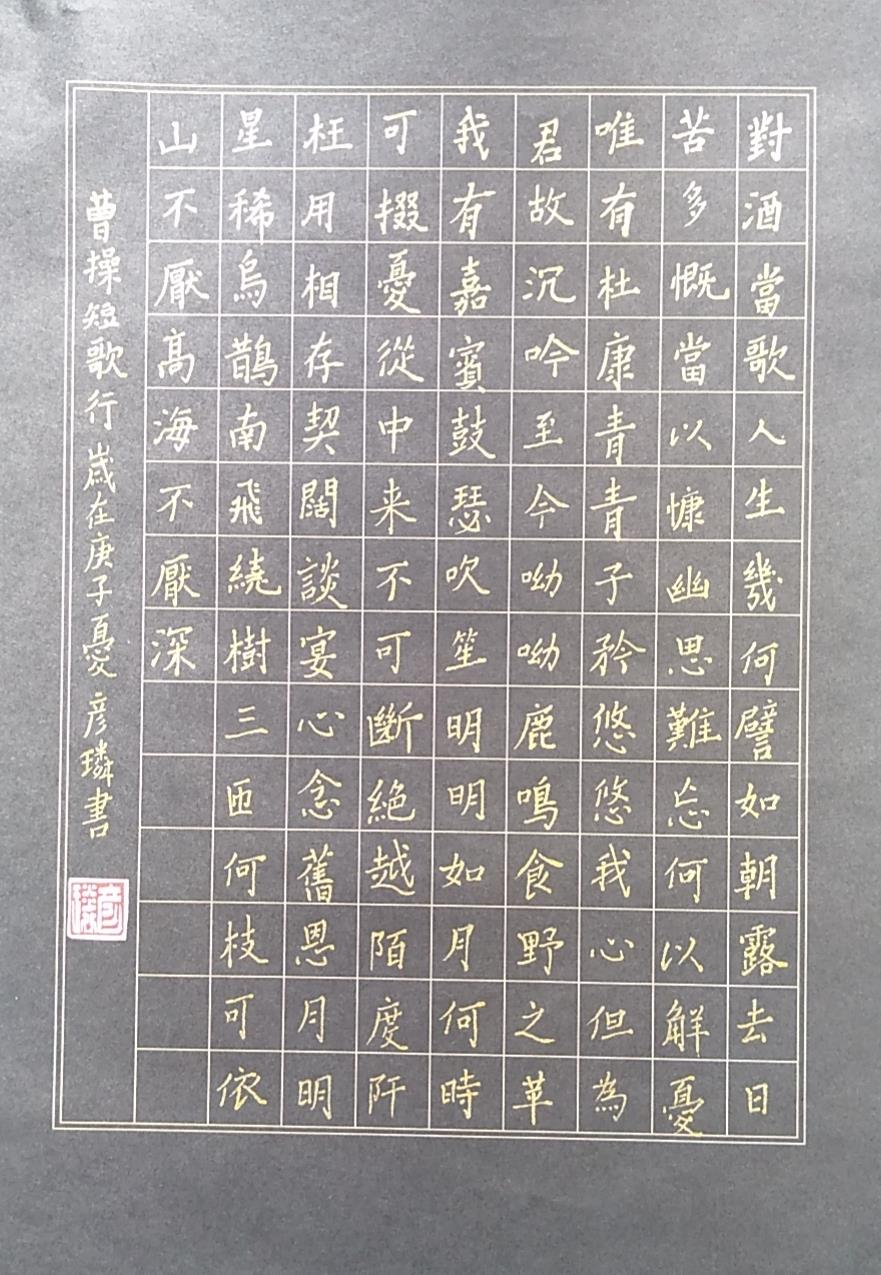 對酒當歌人生幾何譬如朝露去日
苦多慨當以慷幽思難忘何以解憂
唯有杜康青青子矜悠悠我心但為
君故沉吟至今呦呦鹿鳴食野之苹
我有嘉賓鼓瑟吹笙明明如月何時
可掇憂從中来不可斷絕越陌度阡
枉用相存契闊談宴心念舊恩月明
星稀烏鵲南飛繞樹三匝何枝可依
山不厭高海不厭深
曹操短歌行 歲在庚子夏 彦璘書
彦璘